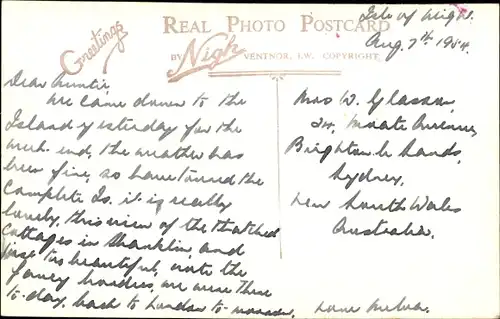 Isle of Wight.
Aug. 7th 1954.
Greetings
REAL PHOTO POSTCARD
BY Nigh VENTNOR, I.W. COPYRIGHT.
Dear Auntie,
We came down to the
Island yesterday for the
week-end, the weather has
been fine, so have toured the
complete Is. it is really
lovely, this view of the thatched
cottages in Shanklin, and
just too beautiful, note the
fancy borders, we were there
to-day, back to London to-morrow,
Love Melva.
Mrs W. Glasson,
24, Moate Avenue,
Brighton le Sands,
Sydney,
New South Wales
Australia.